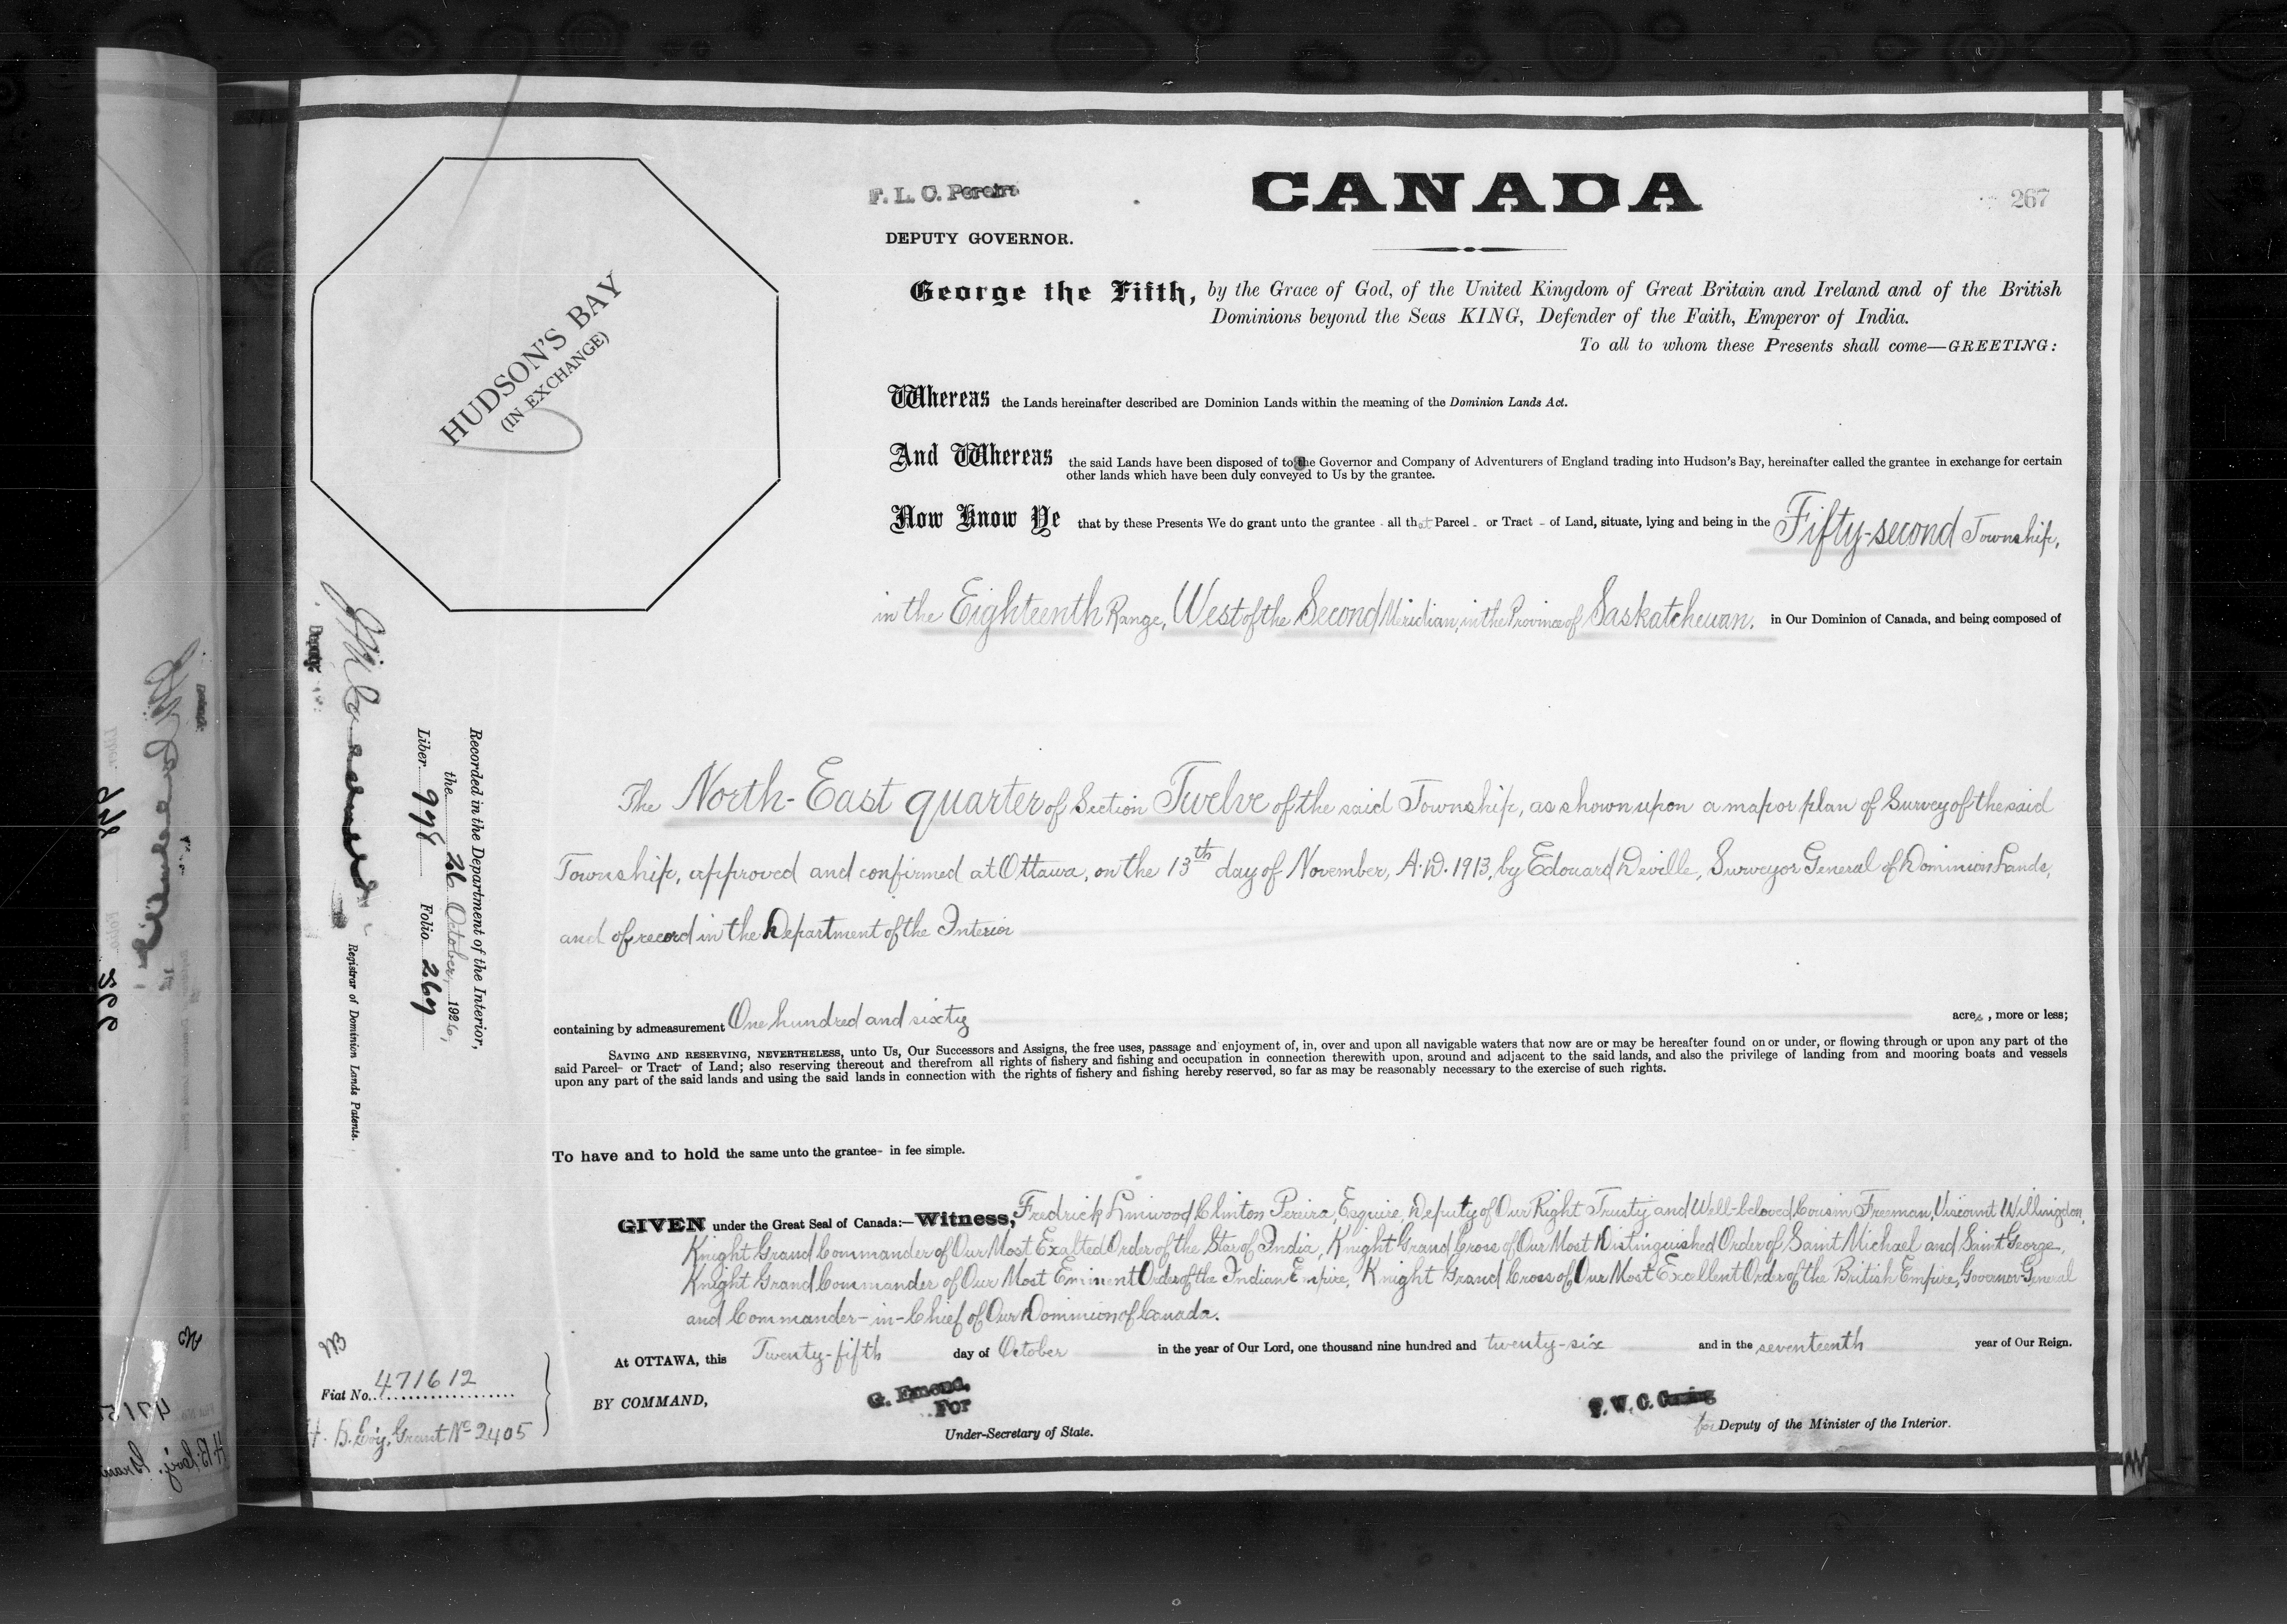 F. L. C. Pereira
DEPUTY GOVERNOR.
CANADA
267
HUDSON'S BAY
(IN EXCHANGE)
George the Fifth, by the Grace of God, of the United Kingdom of Great Britain and Ireland and of the British
Dominions beyond the Seas KING, Defender of the Faith, Emperor of India.
To all to whom these Presents shall come—GREETING:
Whereas the Lands hereinafter described are Dominion Lands within the meaning of the Dominion Lands Act.
And Whereas the said Lands have been disposed of to the Governor and Company of Adventurers of England trading into Hudson's Bay, hereinafter called the grantee in exchange for certain
other lands which have been duly conveyed to Us by the grantee.
Now Know Ye that by these Presents We do grant unto the grantee - all that Parcel - or Tract - of Land, situate, lying and being in the Fifty-second Township,
in the Eighteenth Range, West of the Second Meridian, in the Province of Saskatchewan. in Our Dominion of Canada, and being composed of
The North-East quarter of Section Twelve of the said Township, as shown upon a map or plan of Survey of the said
Township, approved and confirmed at Ottawa, on the 13th day of November, A.D. 1913, by Edouard Deville, Surveyor General of Dominion Lands,
and of record in the Department of the Interior
containing by admeasurement One hundred and sixty acres, more or less;
SAVING AND RESERVING, NEVERTHELESS, unto Us, Our Successors and Assigns, the free uses, passage and enjoyment of, in, over and upon all navigable waters that now are or may be hereafter found on or under, or flowing through or upon any part of the
said Parcel- or Tract- of Land; also reserving thereout and therefrom all rights of fishery and fishing and occupation in connection therewith upon, around and adjacent to the said lands, and also the privilege of landing from and mooring boats and vessels
upon any part of the said lands and using the said lands in connection with the rights of fishery and fishing hereby reserved, so far as may be reasonably necessary to the exercise of such rights.
To have and to hold the same unto the grantee- in fee simple.
GIVEN under the Great Seal of Canada:—Witness, Fredrick Linwood Clinton Pereira, Esquire, Deputy of Our Right Trusty and Well-beloved Cousin Freeman, Viscount Willingdon,
Knight Grand Commander of Our Most Exalted Order of the Star of India, Knight Grand Cross of Our Most Distinguished Order of Saint Michael and Saint George,
Knight Grand Commander of Our Most Eminent Order of the Indian Empire, Knight Grand Cross of Our Most Excellent Order of the British Empire, Governor General
and Commander-in-Chief of Our Dominion of Canada.
At OTTAWA, this Twenty-fifth day of October in the year of Our Lord, one thousand nine hundred and twenty-six and in the seventeenth year of Our Reign.
BY COMMAND,
G. Emond,
For
Under-Secretary of State.
F. W. C. Cuming
for Deputy of the Minister of the Interior.
Recorded in the Department of the Interior,
the 26 October, 1926,
Liber 998 Folio 267
Deputy
Registrar of Dominion Lands Patents.
Fiat No. 471612
H. B. Coy. Grant No 2405